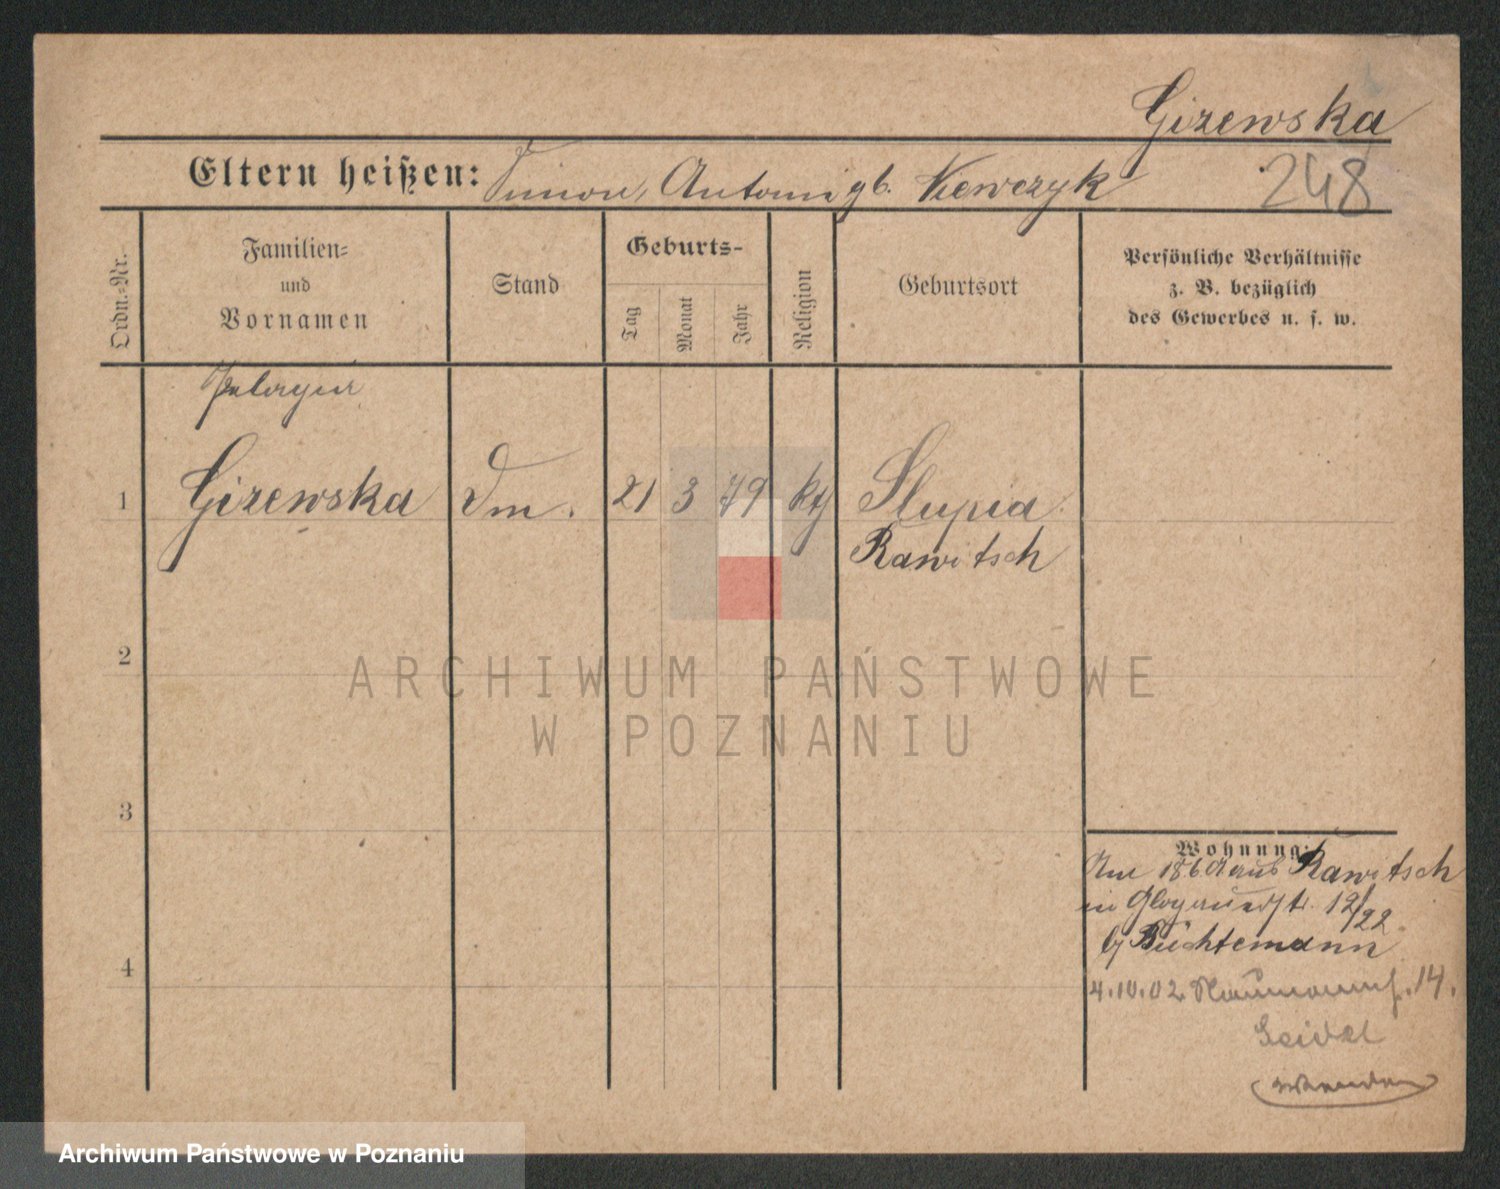 Gizewska
Eltern heißen: Simon, Antoni gb. Kewczyk
248
Ordn.-Nr.
Familien-
und
Vornamen
Stand
Geburts-
Tag
Monat
Jahr
Religion
Geburtsort
Persönliche Verhältnisse
z. B. bezüglich
des Gewerbes u. s. w.
Pelagia
1 Gizewska Dm. 21 3 79 kth Slupia
Rawitsch
2
3
4
Wohnung:
aus Rawitsch
in Glogauerstr. 12/22
bj Büchtemann
4.10.02. Naumannst. 14.
Seidel
Wenden
ARCHIWUM PAŃSTWOWE
W POZNANIU
Archiwum Państwowe w Poznaniu